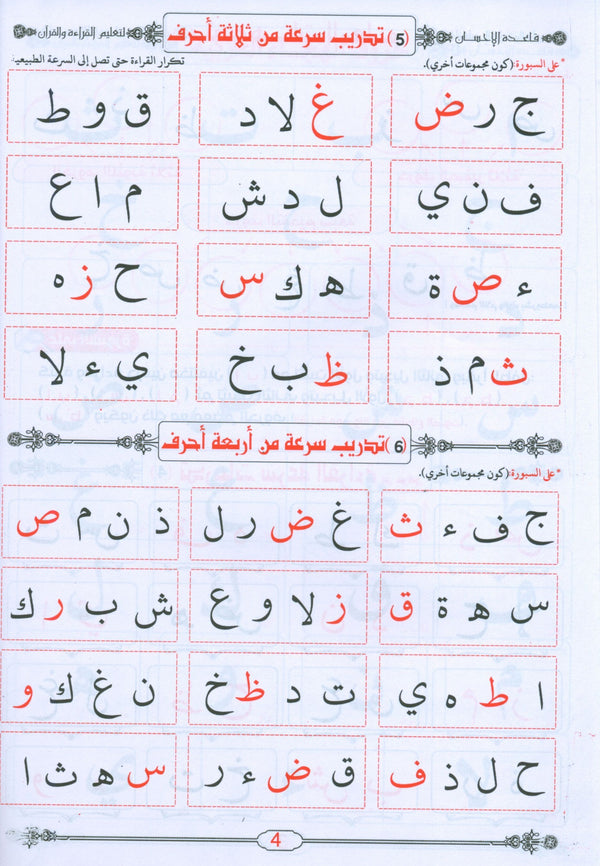 قاعدة الإحسان (5) تدريب سرعة من ثلاثة أحرف لتعليم القراءة والقرآن
* على السبورة: (كون مجموعات أخري). تكرار القراءة حتى تصل إلى السرعة الطبيعية:
ج ر ض غ لا د ق و ط
ف ن ي ل د ش م ا ع
ء ص ة ه ك س ح ز ه
ث م ذ ظ ب خ ي ء لا
(6) تدريب سرعة من أربعة أحرف
* على السبورة: (كون مجموعات أخري).
ج ف ء ث غ ض ر ل ذ ن م ص
س ه ة ق ز لا و ع ش ب ر ك
ا ط ه ي ت د ظ خ ن غ ك و
ح ل ذ ف ق ض ء ر س ه ث ا
4